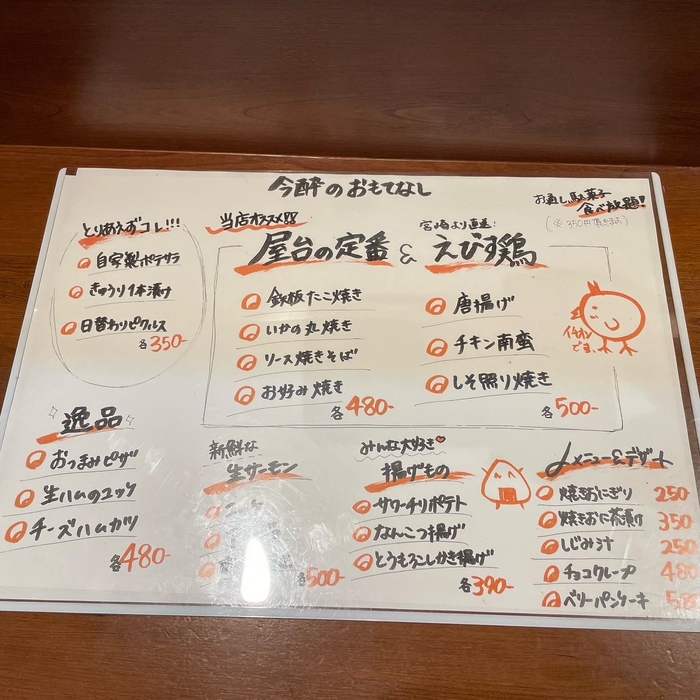 今酔のおもてなし
お通し駄菓子
食べ放題!
(※350円頂きます)
とりあえずコレ!!!
自家製ポテサラ
きゅうり1本漬け
日替わりピクルス
各350-
当店オススメ
屋台の定番 &
鉄板たこ焼き
いかの丸焼き
ソース焼きそば
お好み焼き
各480-
宮崎より直送!
えびす鶏
唐揚げ
チキン南蛮
しそ照り焼き
各500-
イチオシ
逸品
おつまみピザ
生ハムのユッケ
チーズハムカツ
各480-
新鮮な
生サーモン
各500-
みんな大好き
揚げもの
サワーチリポテト
なんこつ揚げ
とうもろこしかき揚げ
各390-
〆メニュー&デザート
焼きおにぎり 250
焼きおに茶漬け 350
しじみ汁 250
チョコクレープ 480
ベリーパンケーキ